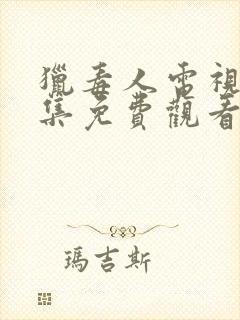 獵毒人電視
集免費觀看
瑪吉斯